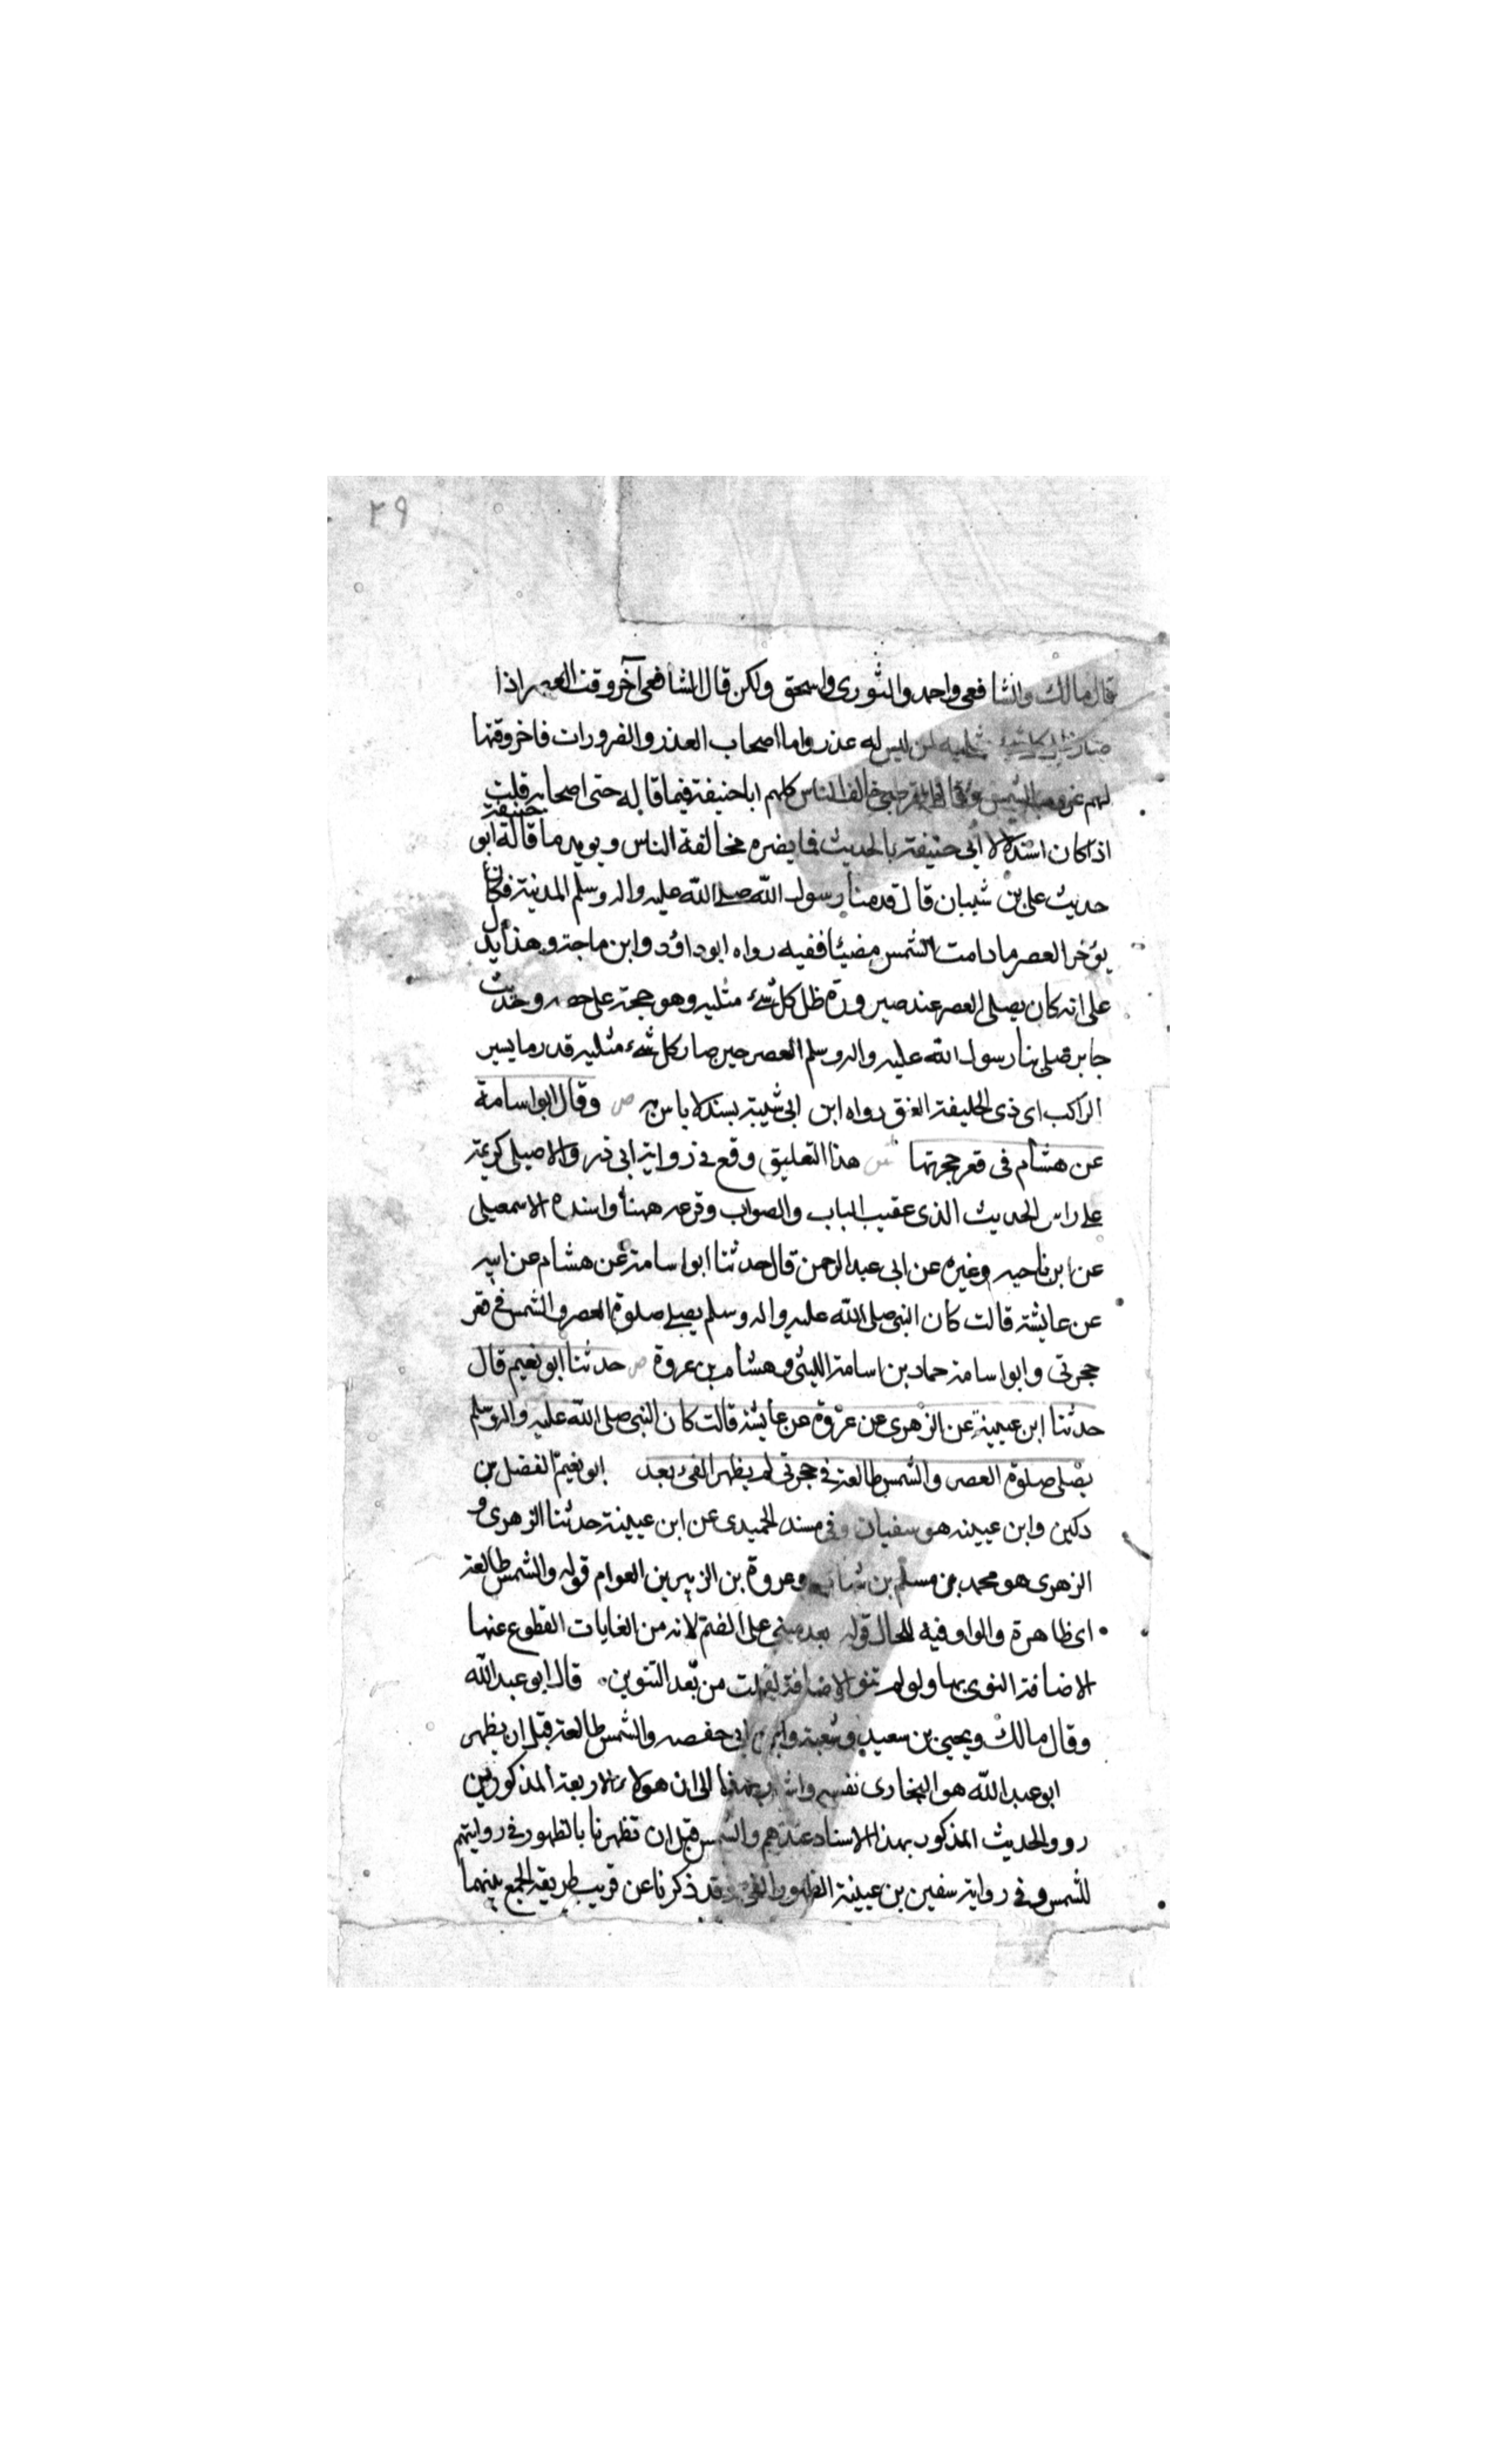 ٢٩
قال مالك والشافعى واحمد والثورى واسحق ولكن قال الشافعى آخر وقت العصر اذا
صار ظل كل شىء مثليه لمن ليس له عذر واما اصحاب العذر والضرورات فاخر وقتها
لهم غروب الشمس وقال القرطبى خالف الناس كلهم ابا حنيفة فيما قاله حتى اصحابه قلت
اذا كان استدلال ابى حنيفة بالحديث فما يضره مخالفة الناس ويويد ما قاله ابو حنيفة
حديث على بن شيبان قال قدمنا رسول الله صلى الله عليه واله وسلم المدينة فكان
يؤخر العصر ما دامت الشمس مضيئا ففيه رواه ابو داؤد وابن ماجة وهذا يدل
على انه كان يصلى العصر عند صيرورة ظل كل شىء مثليه وهو حجة على وحديث
جابر صلى بنا رسول الله عليه واله وسلم العصر حين صار كل شىء مثليه قدر ما يسير
الراكب اى ذى الحليفة العنق رواه ابن ابى شيبة بسند لا باس به ص وقال ابو اسامة
عن هشام فى قعر حجرتها ش هذا التعليق وقع فى رواية ابى ذر والاصيلى كريمة
على راس الحديث الذى عقيب الباب والصواب وقوعه ههنا واسنده الاسمعيلى
عن ابن ناحيه وغيره عن ابى عبد الرحمن قال حدثنا ابو اسامة عن هشام عن ابيه
عن عايشة قالت كان النبى صلى الله عليه واله وسلم يصلى صلوة العصر والشمس فى قعر
حجرتى وابو اسامة حماد بن اسامة الليثى وهشام بن عروة ص حدثنا ابو نعيم قال
حدثنا ابن عيينة عن الزهرى عن عروة عن عايشة قالت كان النبى صلى الله عليه واله وسلم
يصلى صلوة العصر والشمس طالعة فى حجرتى لم يظهر الفىء بعد ابو نعيم الفضل بن
دكين وابن عيينه هو سفيان وفى مسند الحميدى عن ابن عيينة حدثنا الزهرى و
الزهرى هو محمد بن مسلم بن شهاب وعروة بن الزبير بن العوام قوله والشمس طالعة
اى ظاهرة والواو فيه للحال قوله بعد مبنى على الضم لانه من الغايات القطوع عنها
الاضافة النوى بها ولو لم تنو الاضافة لقلت من بعد التنوين قال ابو عبد الله
وقال مالك ويحيى بن سعيد وشعبة وابن ابى حفصه والشمس طالعة قبل ان يظهر
ابو عبد الله هو البخارى نفسه واشار بهذا الى ان هولاء الاربعة المذكورين
رووا الحديث المذكور بهذا الاسناد عندهم والشمس قبل ان تظهر نا بالظهور فى روايتهم
للشمس وفى رواية سفين بن عيينة الظهور الفىء وقد ذكرنا عن قريب طريقه الجمع بينهما